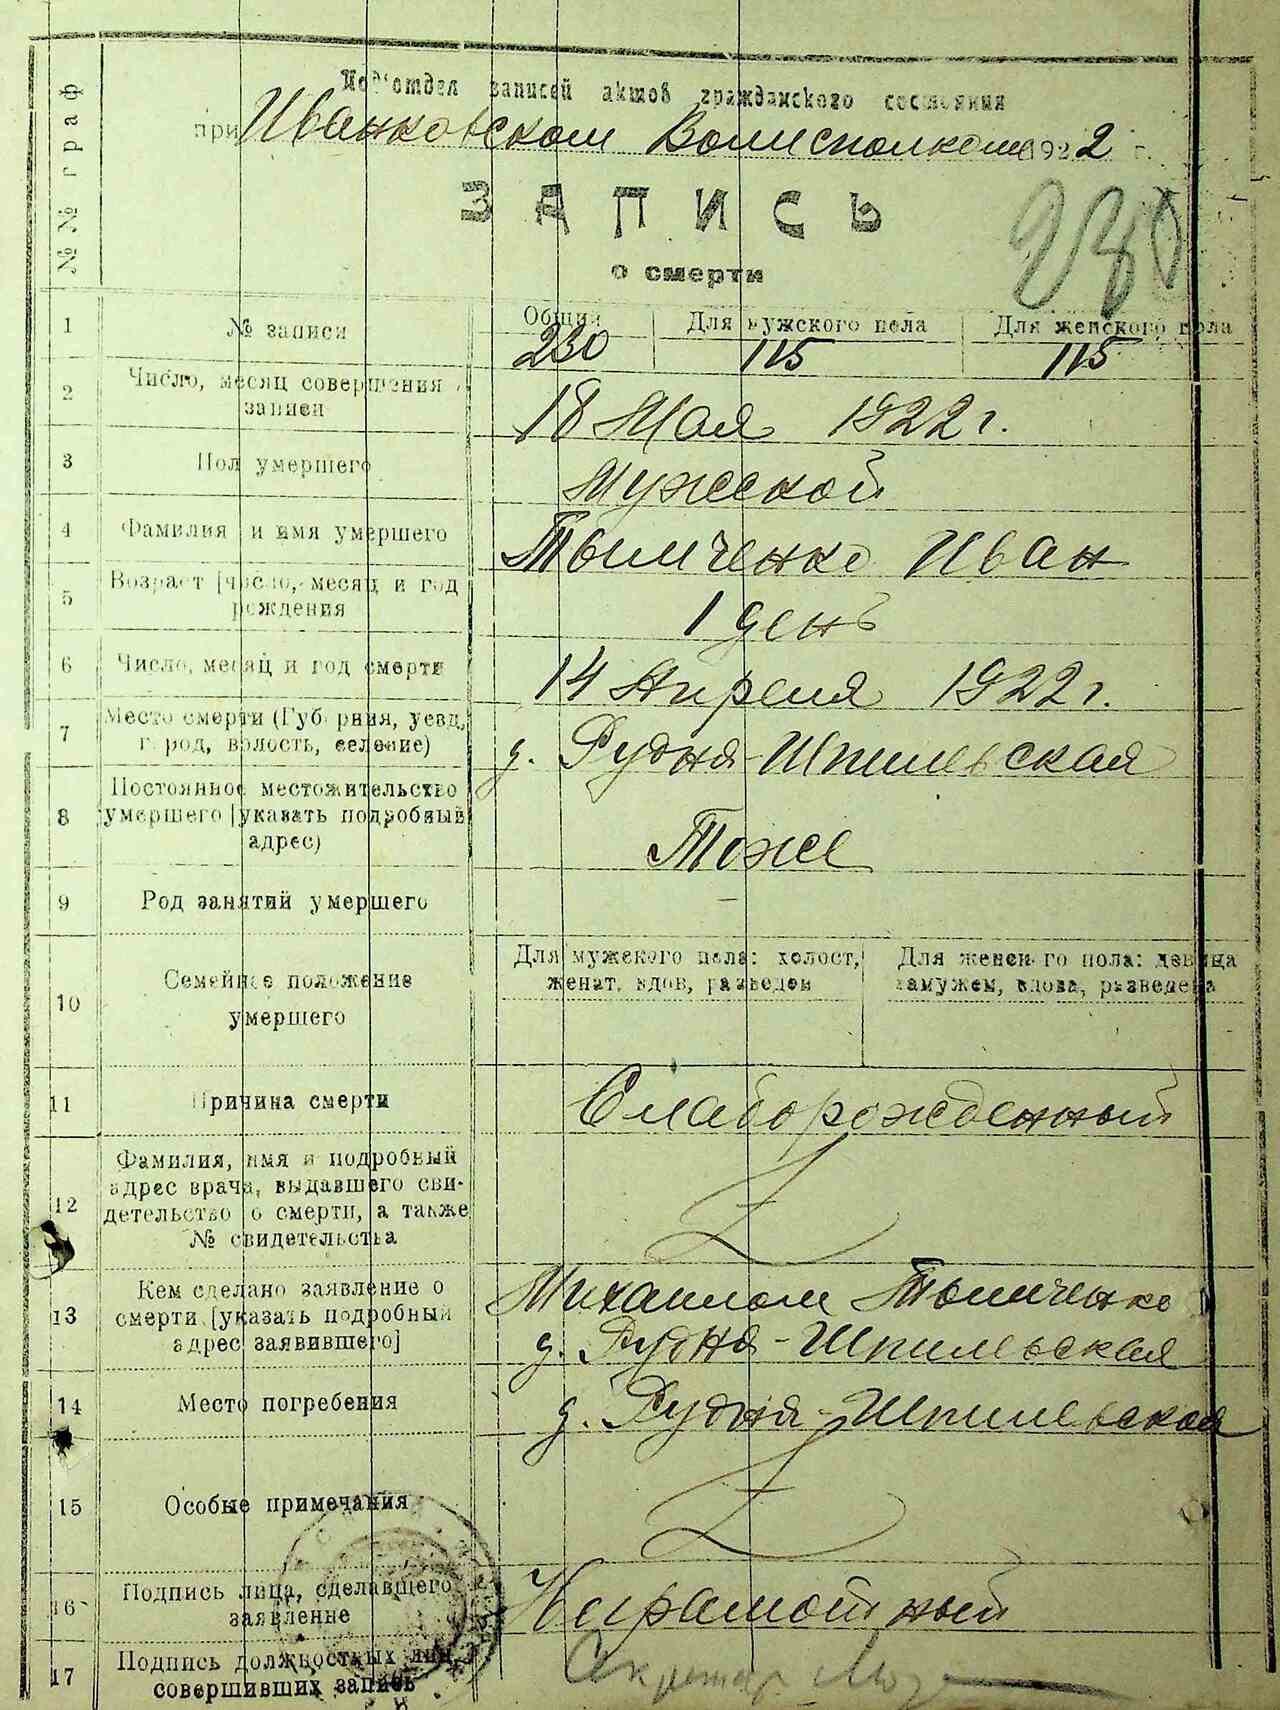 № № граф
Под'отдел записей актов гражданского состояния
при Иванковском Волисполкоме 1922 г.
ЗАПИСЬ
о смерти
230
1 № записи Общий Для мужского пола Для женского пола
230 115 115
2 Число, месяц совершения
записи
18 Мая 1922 г.
3 Пол умершего Мужской
4 Фамилия и имя умершего Тымченко Иван
5 Возраст [число, месяц и год
рождения
1 день
6 Число, месяц и год смерти 14 Апреля 1922 г.
7 Место смерти (Губерния, уезд,
город, волость, селение)
д. Рудня-Шпилевская
8 Постоянное местожительство
умершего [указать подробный
адрес)
Тоже
9 Род занятий умершего –
10 Семейное положение
умершего
Для мужского пола: холост,
женат, вдов, разведен
Для женского пола: девица
замужем, вдова, разведена
11 Причина смерти Слаборожденный
12 Фамилия, имя и подробный
адрес врача, выдавшего сви-
детельство о смерти, а также
№ свидетельства
13 Кем сделано заявление о
смерти [указать подробный
адрес заявившего]
Михаилом Тымченко
д. Рудня-Шпилевская
14 Место погребения д. Рудня-Шпилевская
15 Особые примечания
16 Подпись лица, сделавшего
заявление
Неграмотный
17 Подпись должностных лиц
совершивших запись
Секретар